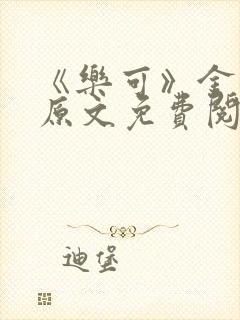 《樂可》金
原文免費閱
迪堡